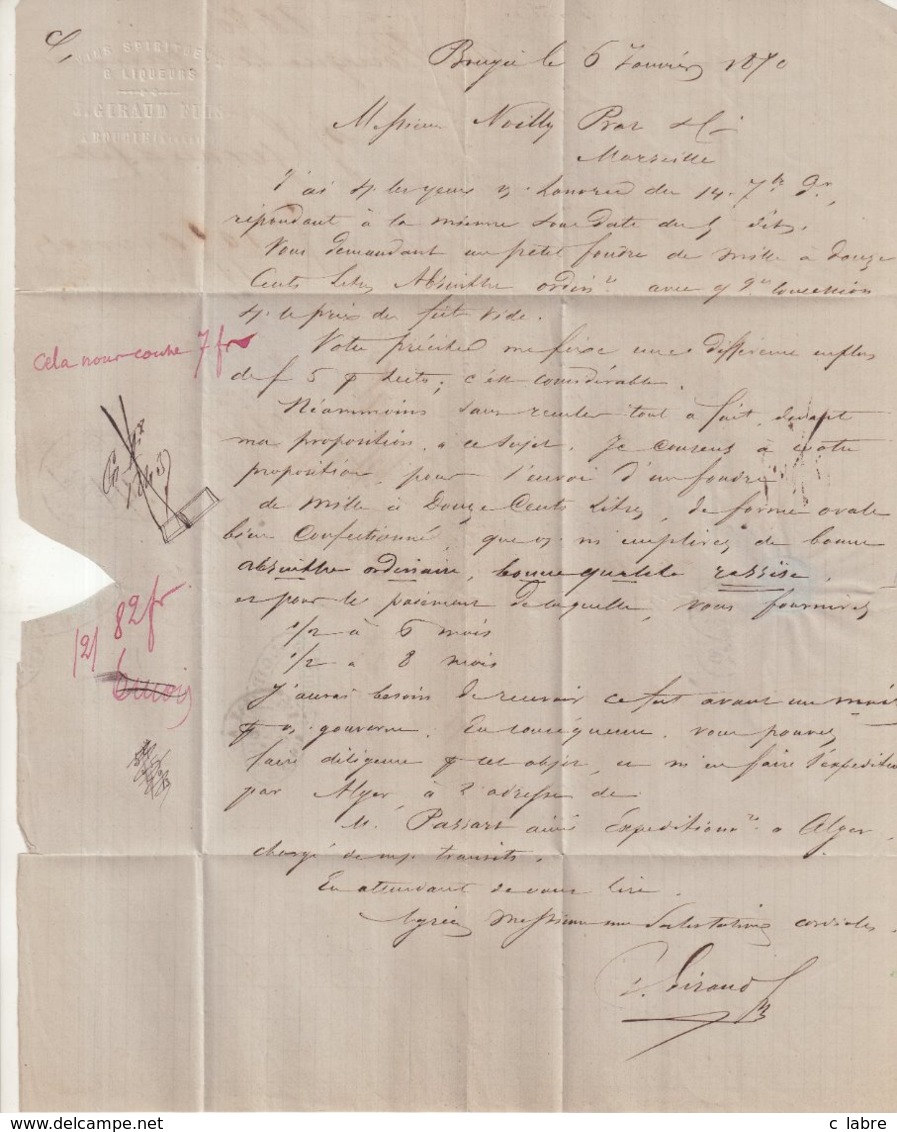 VINS SPIRITUEUX
& LIQUEURS
J. GIRAUD FILS
À BOUGIE
Bougie le 6 Janvier 1870
Messieurs Noilly Prat & Cie
Marseille
J'ai s/ les yeux v/ honorée du 14. 7bre dr,
répondant à la mienne sous date du 5 dito.
Vous demandant un petit foudre de mille à douze
Cents Litres Absinthe ordinre avec
s/ le prix du fût vide.
Votre précitée me fixe une différence en plus
de f 5 p hecto; c'est considérable.
Cela nous coute 7 frs
Néammoins sans reculer tout à fait, devant
ma proposition à ce sujet, Je consens à votre
proposition, pour l'envoi d'un foudre
de Mille à Douze Cents Litres, de forme ovale
bien Confectionné, que v/ m'emplirez de bonne
absinthe ordinaire, bonne qualité rassise,
et pour le paiement de laquelle, vous fournirez
1/2 à 6 mois
1/2 à 8 mois
82 fr
J'aurai besoin de recevoir ce fût avant un mois
p v/ gouverne. En conséquence vous pouvez
faire diligence p cet objet, et m'en faire l'expédition
par Alger, à l'adresse de
M. Passart ainé Expéditionre à Alger,
chargé de mes transits.
En attendant de vous lire
Agréez Messieurs mes Salutations cordiales.
J. Giraud fs
c labre